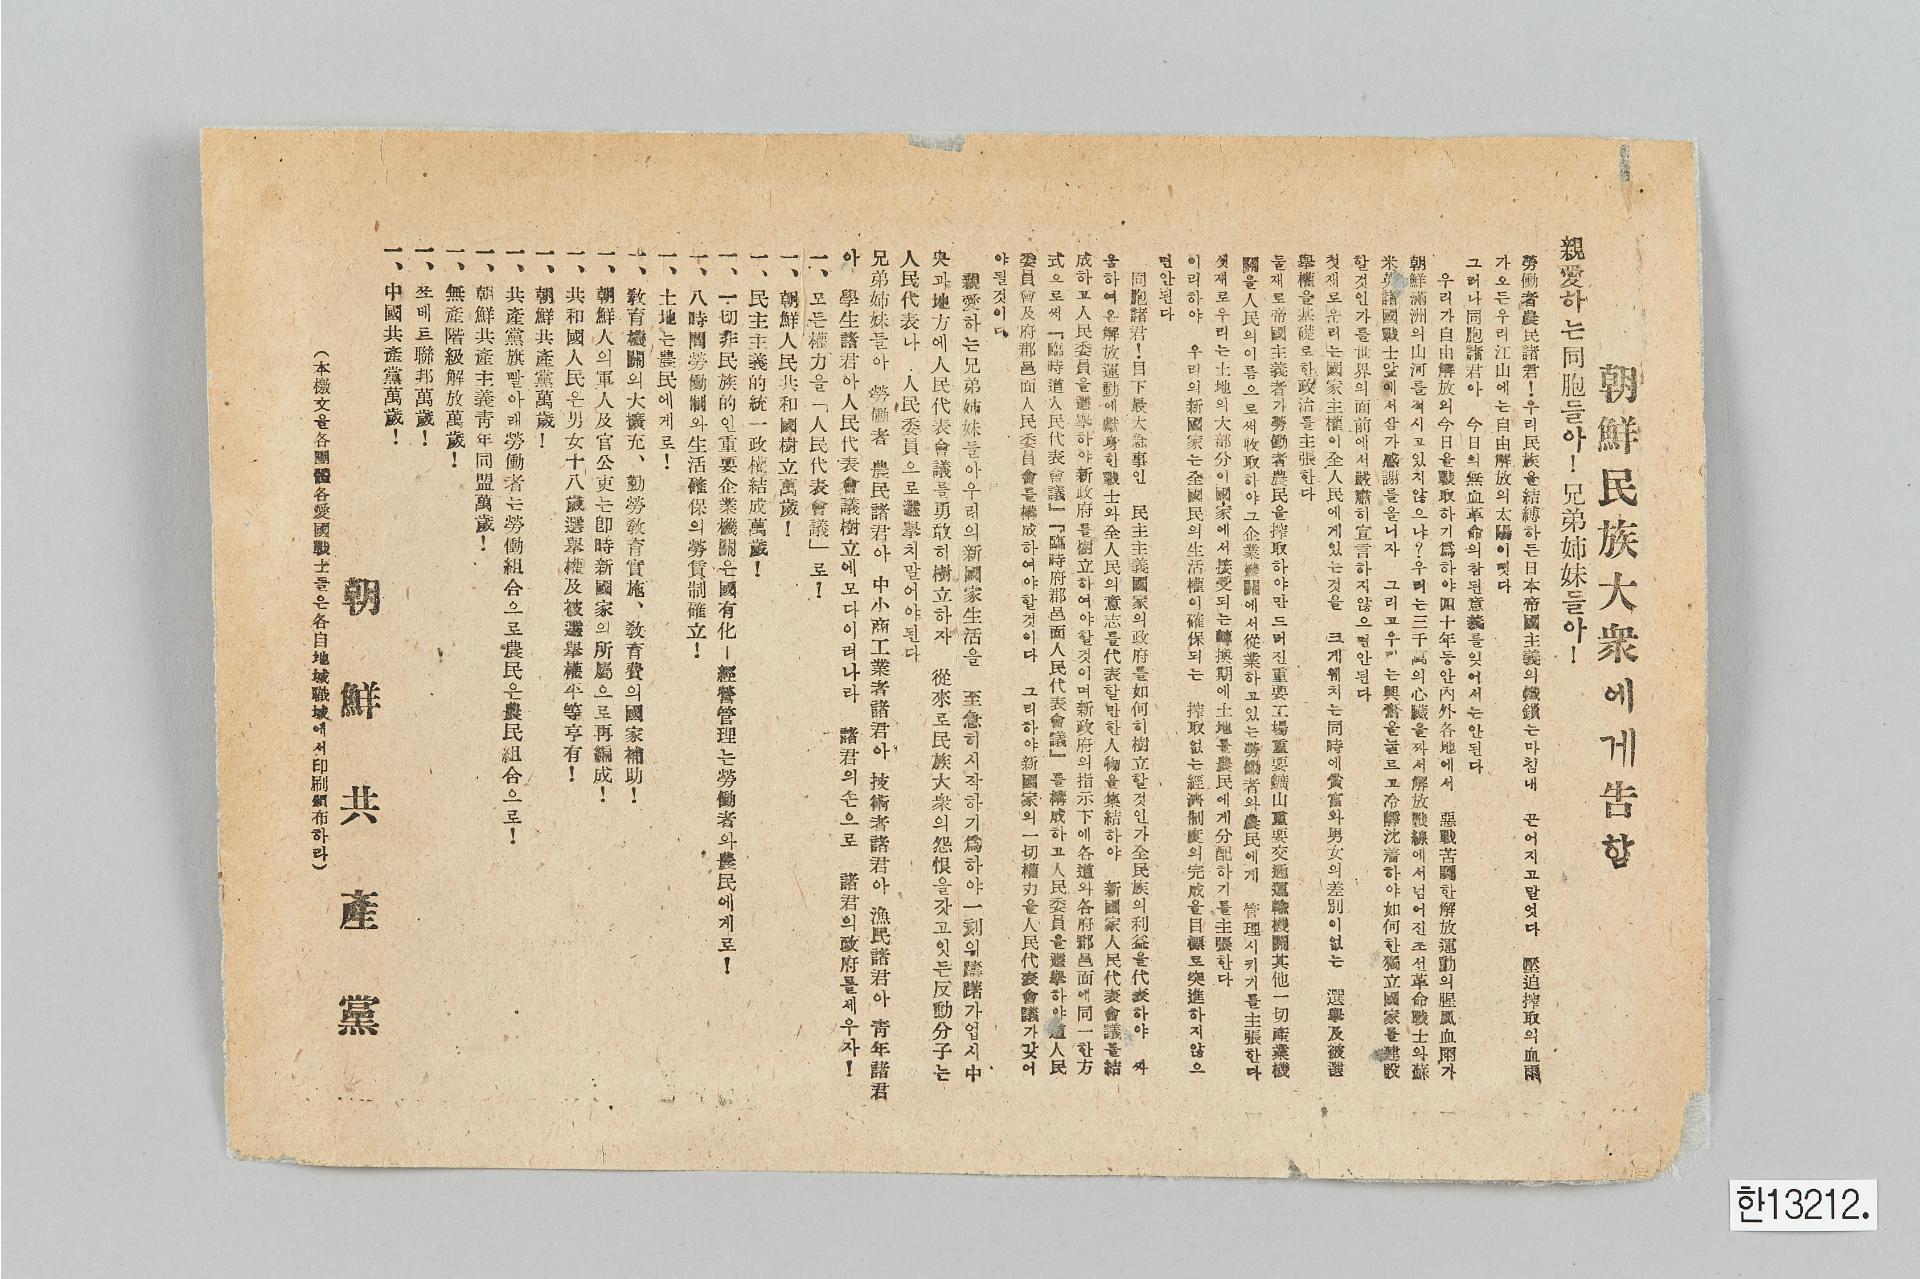 朝鮮民族大衆에게告함
親愛하는同胞들아！兄弟姉妹들아！
勞働者農民諸君！우리民族을結縛하든日本帝國主義의鐵鎖는마침내 끈어지고말엇다 壓迫搾取의血雨
가오든우리江山에는自由解放의太陽이떳다
그러나同胞諸君아 今日의無血革命의참된意義를잊어서는안된다
우리가自由解放의今日을戰取하기爲하야四十年동안內外各地에서 惡戰苦鬪한解放運動의腥風血雨가
朝鮮滿洲의山河를적시고있지않으냐？우리는三千萬의心臟을짜서解放戰線에서넘어진조선革命戰士와蘇
米英諸國戰士앞에서삼가感謝를올니자 그리고우리는興奮을눌르고冷靜沈着하야如何한獨立國家를建設
할것인가를世界의面前에서嚴肅히宣言하지않으면안된다
첫재로우리는國家主權이全人民에게있는것을 크게웨치는同時에貧富와男女의差別이없는 選擧及被選
擧權을基礎로한政治를主張한다
둘재로帝國主義者가勞働者農民을搾取하야만드러진重要工場重要鑛山重要交通運輸機關其他一切産業機
關을人民의이름으로써收取하야그企業機關에서從業하고있는勞働者와農民에게 管理시키기를主張한다
셋재로우리는土地의大部分이國家에서接受되는轉換期에土地를農民에게分配하기를主張한다
이리하야 우리의新國家는全國民의生活權이確保되는 搾取없는經濟制度의完成을目標로突進하지않으
면안된다
同胞諸君！目下最大急事인 民主主義國家의政府를如何히樹立할것인가全民族의利益을代表하야 싸
움하여온解放運動에獻身한戰士와全人民의意志를代表할만한人物을集結하야 新國家人民代表會議를結
成하고人民委員을選擧하야新政府를樹立하여야할것이며新政府의指示下에各道와各府郡邑面에同一한方
式으로써「臨時道人民代表會議」「臨時府郡邑面人民代表會議」를構成하고人民委員을選擧하야道人民
委員會及府郡邑面人民委員會를構成하여야할것이다 그리하야新國家의一切權力을人民代表會議가갖어
야될것이다
親愛하는兄弟姉妹들아우리의新國家生活을 至急히시작하기爲하야一刻의躊躇가업시中
央과地方에人民代表會議를勇敢히樹立하자 從來로民族大衆의怨恨을갓고잇든反動分子는
人民代表나 人民委員으로選擧치말어야된다
兄弟姉妹들아 勞働者 農民諸君아 中小商工業者諸君아 技術者諸君아 漁民諸君아 靑年諸君
아 學生諸君아人民代表會議樹立에모다이러나라 諸君의손으로 諸君의政府를세우자！
一、모든權力을「人民代表會議」로！
一、朝鮮人民共和國樹立萬歲！
一、民主主義的統一政權結成萬歲！
一、一切非民族的인重要企業機關은國有化—經營管理는勞働者와農民에게로！
一、八時間勞働制와生活確保의勞賃制確立！
一、土地는農民에게로！
一、敎育機關의大擴充、勤勞敎育實施、敎育費의國家補助！
一、朝鮮人의軍人及官公吏는卽時新國家의所屬으로再編成！
一、共和國人民은男女十八歲選擧權及被選擧權平等享有！
一、朝鮮共産黨萬歲！
一、共産黨旗빨아래勞働者는勞働組合으로農民은農民組合으로！
一、朝鮮共産主義靑年同盟萬歲！
一、無産階級解放萬歲！
一、쏘베트聯邦萬歲！
一、中國共産黨萬歲！
朝鮮共産黨
（本檄文을各團體各愛國戰士들은各自地域職域에서印刷頒布하라）
한13212.